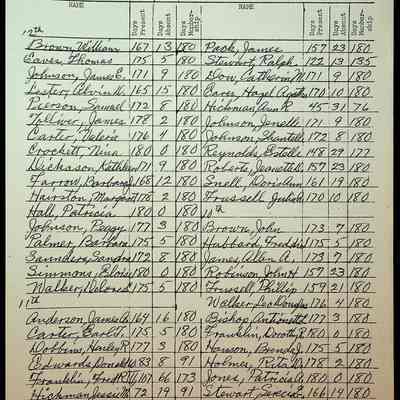 NAME Days Present Days Absent Days Membership NAME Days Present Days Absent Days Membership
12th
Brown, William 167 13 180
Eaves, Thomas 175 5 180
Johnson, James E. 171 9 180
Lester, Alvin 165 15 180
172 8 180
James 178 2 180
Carter, Valeria 176 4 180
Crockett, Nina 180 0 180
Dickason, Kathleen 171 9 180
Farrow, Barbara J. 168 12 180
Hairston, Margaret 178 2 180
Hall, Patricia 180 0 180
Johnson, Peggy 177 3 180
Palmer, Barbara 175 5 180
Saunders, Sandra 172 8 180
Simmons, Eloise 180 0 180
Walker, Delores 175 5 180
11th
Anderson, James 164 16 180
Carter, Earl T. 175 5 180
Dobbins, Harley R. 177 3 180
Edwards, Donald 83 8 91
Franklin, Fred 107 66 173
Hickman, Jesse 72 19 91
Pack, James 157 23 180
Stewart, Ralph 122 13 135
Dow, Catherine M. 171 9 180
Eaves, Hazel 170 10 180
Hickman, Ann R. 45 31 76
Johnson, Jenelle 171 9 180
Johnson, 172 8 180
Reynolds, Estelle 148 29 177
Roberts, Jeanette 157 23 180
Snell, Doris Ann 161 19 180
Trussell, Julia 170 10 180
10th
Brown, John 173 7 180
Hubbard, Freddie 175 5 180
James, Allen A. 173 7 180
Robinson, John H. 157 23 180
Trussell, Phillip 159 21 180
Walker, Leo Douglas 176 4 180
Bishop, Antionette 177 3 180
Franklin, Dorothy R. 180 0 180
Hanson, Brenda J. 175 5 180
Holmes, Rita 178 2 180
Jones, Patricia 180 0 180
Stewart, 166 14 180